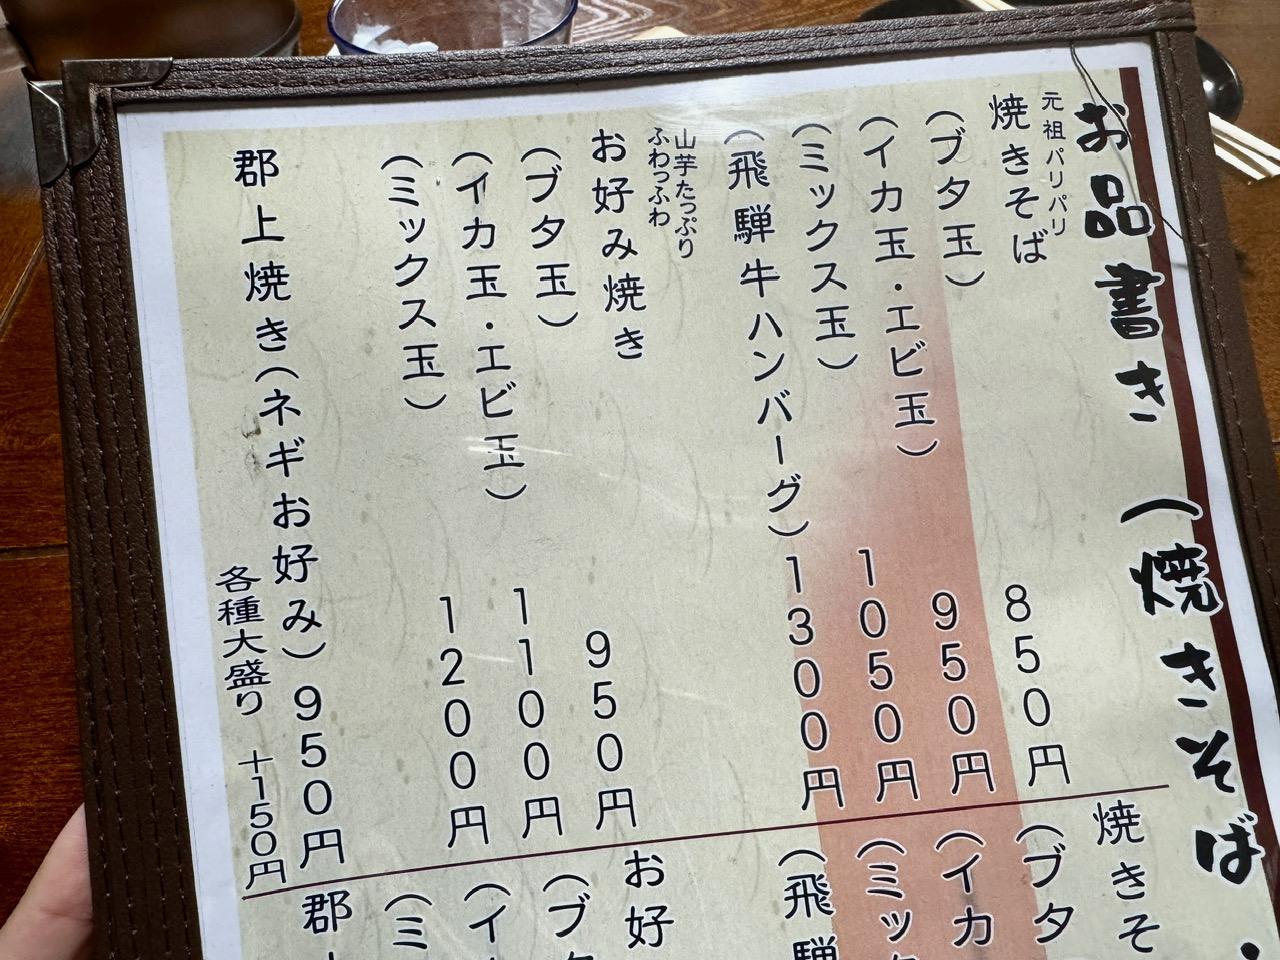 お品書き (焼きそば・
元祖パリパリ
焼きそば
(ブタ玉) 850円
(イカ玉・エビ玉) 950円
(ミックス玉) 1050円
(飛騨牛ハンバーグ) 1300円
山芋たっぷり
ふわっふわ
お好み焼き
(ブタ玉) 950円
(イカ玉・エビ玉) 1100円
(ミックス玉) 1200円
郡上焼き(ネギお好み) 950円
各種大盛り +150円
焼きそ
(ブタ
(イカ
(ミック
(飛騨
お好
(ブタ
(イ
(ミ
郡